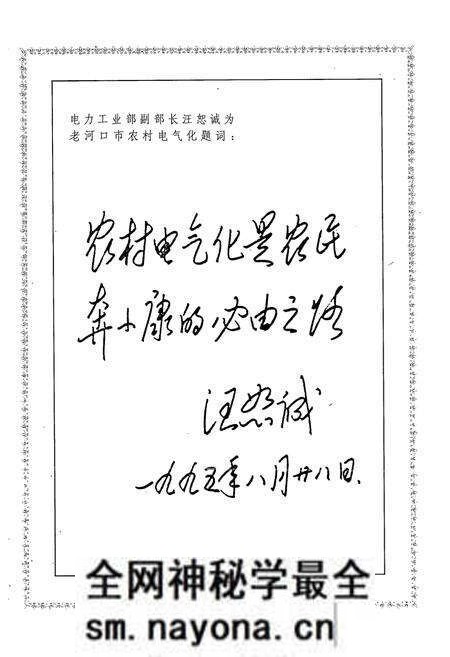 电力工业部副部长汪恕诚为
老河口市农村电气化题词：
农村电气化是农民
奔小康的必由之路
汪恕诚
一九九五年八月廿八日.
全网神秘学最全
sm.nayona.cn